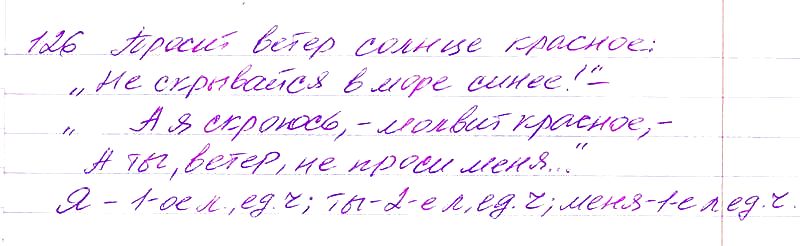 126 Просит ветер солнце красное:
„Не скрывайся в море синее!“ –
„ А я скроюсь, – молвит красное, –
А ты, ветер, не проси меня...“
Я – 1-ое л., ед.ч; ты – 2-е л, ед.ч; меня – 1-е л ед.ч.